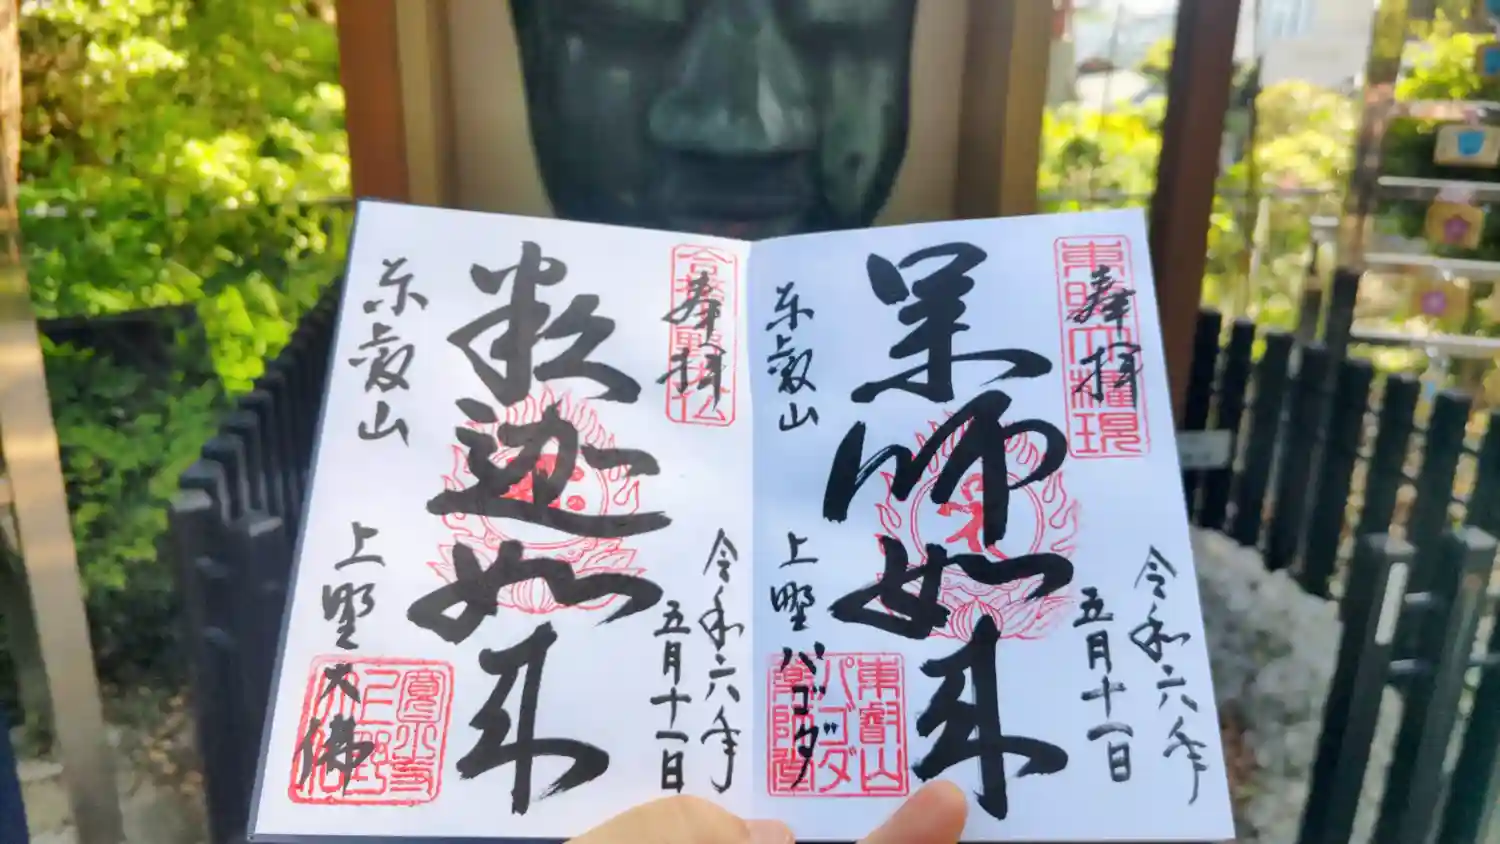 奉拝
東照大権現
令和六年
五月十一日
薬師如来
東叡山
上野パゴダ
東叡山
パゴダ
薬師堂
奉拝
令和六年
五月十一日
釈迦如来
東叡山
上野大佛
寛永寺
上野
大佛